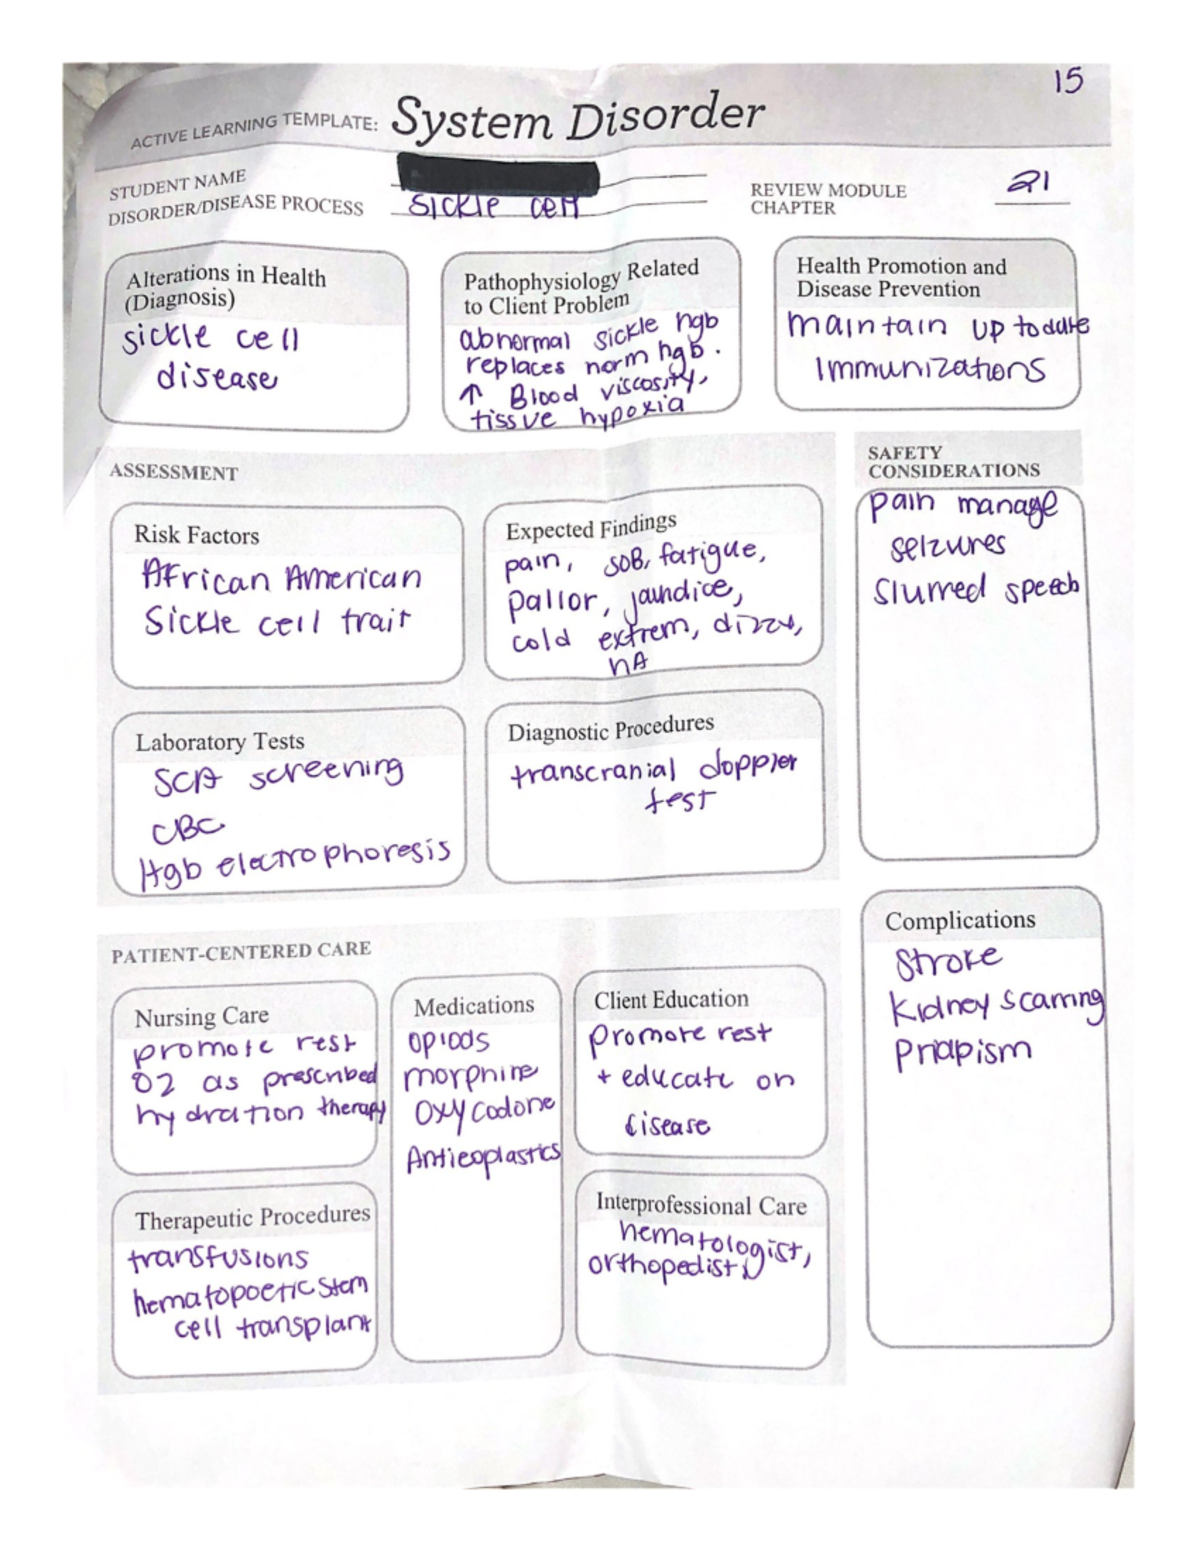 15
ACTIVE LEARNING TEMPLATE: System Disorder
STUDENT NAME
DISORDER/DISEASE PROCESS Sickle cell
REVIEW MODULE CHAPTER 21
Alterations in Health
(Diagnosis)
sickle cell
disease
Pathophysiology Related
to Client Problem
abnormal sickle hgb
replaces norm hgb.
↑ Blood viscosity,
tissue hypoxia
Health Promotion and
Disease Prevention
maintain up to date
Immunizations
ASSESSMENT
SAFETY
CONSIDERATIONS
pain manage
seizures
Slurred speech
Risk Factors
African American
Sickle cell trait
Expected Findings
pain, SOB, fatigue,
pallor, jaundice,
cold extrem, dizzy,
HA
Laboratory Tests
SCA screening
CBC
Hgb electrophoresis
Diagnostic Procedures
transcranial doppler
test
Complications
Stroke
Kidney scarring
Priapism
PATIENT-CENTERED CARE
Nursing Care
promote rest
O2 as prescribed
hydration therapy
Medications
opiods
morphine
oxycodone
Antieoplastics
Client Education
promote rest
+ educate on
disease
Therapeutic Procedures
transfusions
hematopoetic stem
cell transplant
Interprofessional Care
hematologist,
orthopedist